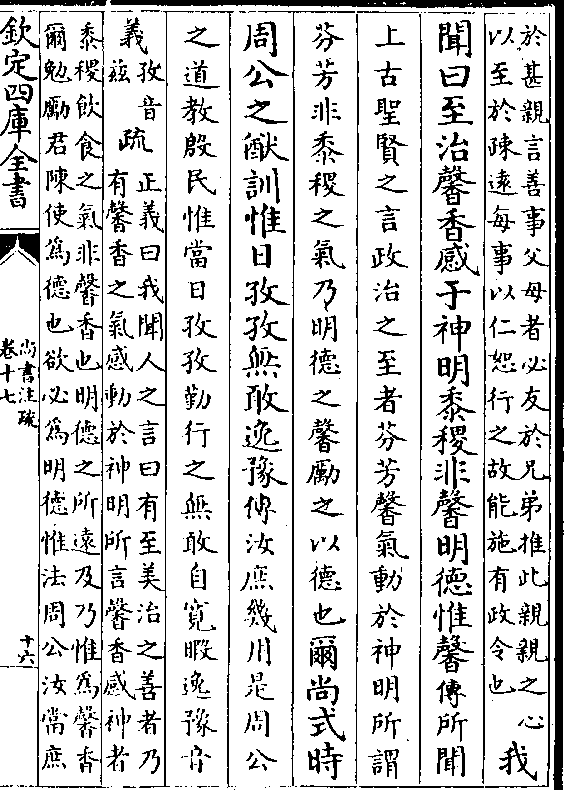 於甚親言善事父母者必友於兄弟推此親親之心
以至於疎遠每事以仁恕行之故能施有政令也
我
聞曰至治馨香感于神明黍稷非馨明德惟馨傳所聞
上古聖賢之言政治之至者芬芳馨氣動於神明所謂
芬芳非黍稷之氣乃明德之馨勵之以德也爾尚式時
周公之猷訓惟日孜孜無敢逸豫傳汝庶幾用是周公
之道教殷民惟當日孜孜勤行之無敢自寬暇逸豫音
義孜音
茲
疏
正義曰我聞人之言曰有至美治之善者乃
有馨香之氣感動於神明所言馨香感神者
黍稷飲食之氣非馨香也明德之所遠及乃惟為馨香
爾勉勵君陳使為德也欲必為明德惟法周公汝當庶
欽定四庫全書
尚書注疏
卷十七
十六